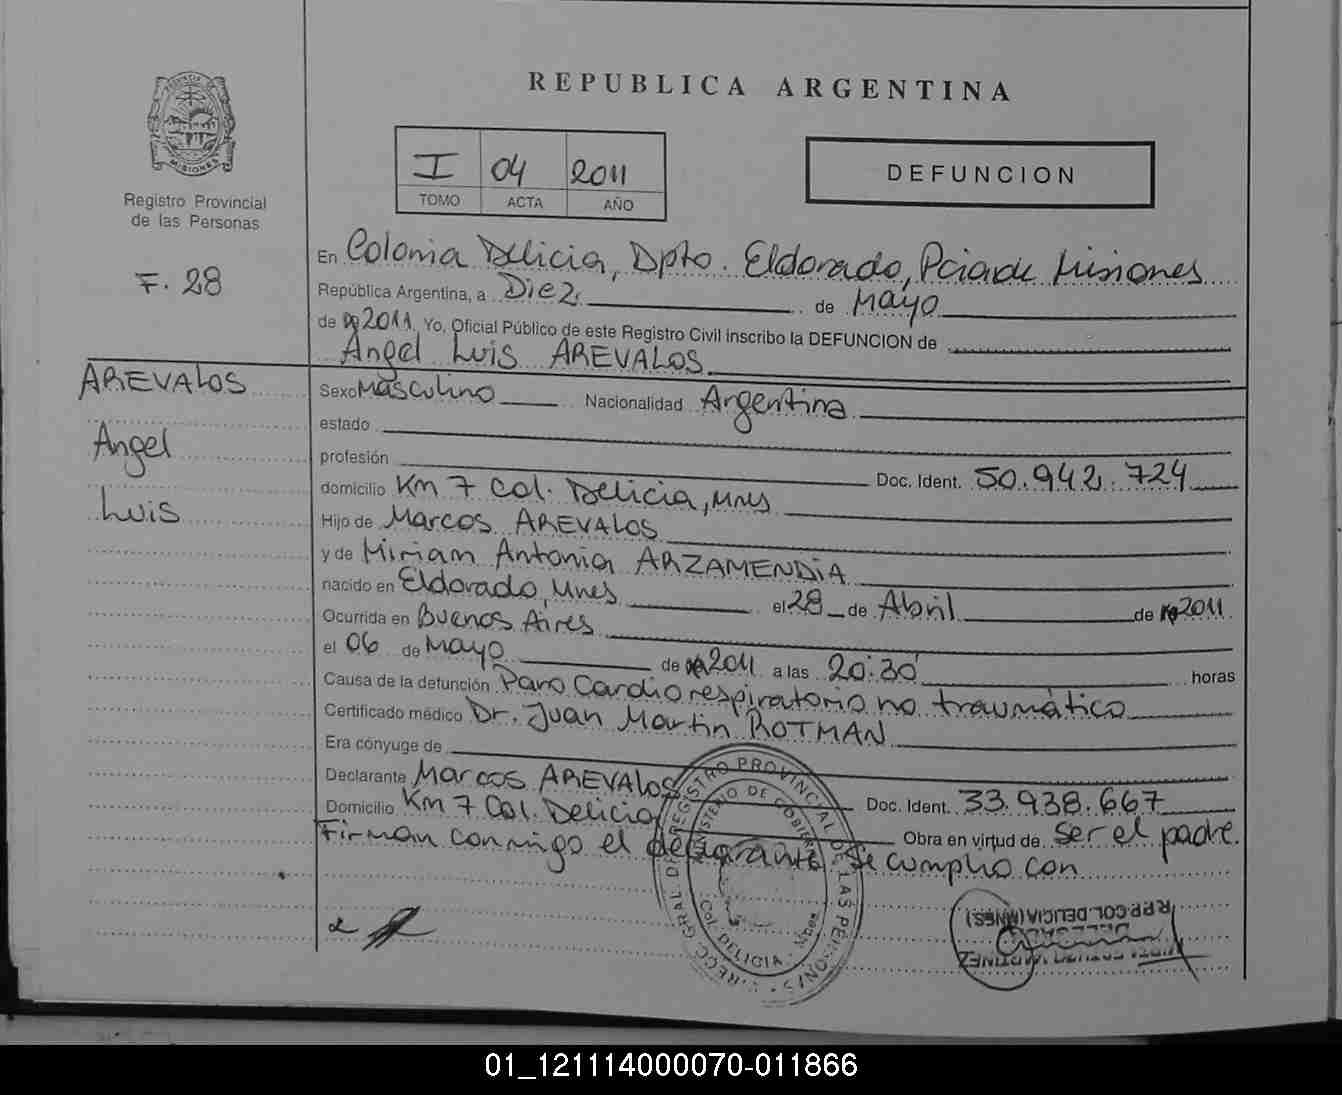 REPUBLICA ARGENTINA
PROVINCIA DE
MISIONES
Registro Provincial
de las Personas
F. 28
I 04 2011
TOMO ACTA AÑO
DEFUNCION
En Colonia Delicia, Dpto. Eldorado, Pcia de Misiones
República Argentina, a Diez de Mayo
de 2011 Yo, Oficial Público de este Registro Civil inscribo la DEFUNCION de
Angel Luis AREVALOS
AREVALOS
Angel
Luis
Sexo Masculino Nacionalidad Argentina
estado
profesión Doc. Ident. 50.942.724
domicilio Km 7 Col. Delicia, Mnes
Hijo de Marcos AREVALOS
y de Miriam Antonia ARZAMENDIA
nacido en Eldorado, Mnes el 28 de Abril de 2011
Ocurrida en Buenos Aires
el 06 de Mayo de 2011 a las 20:30 horas
Causa de la defunción Paro Cardiorespiratorio no traumático
Certificado médico Dr. Juan Martin ROTMAN
Era cónyuge de
Declarante Marcos AREVALOS Doc. Ident. 33.938.667
Domicilio Km 7 Col. Delicia Obra en virtud de ser el padre.
Firman conmigo el declarante. Se cumplio con
DIRECC. GRAL. DE REGISTRO PROVINCIAL DE LAS PERSONAS
MINISTERIO DE GOBIERNO
Col. DELICIA - Mnes
R.P.P. COL. DELICIA (MNES)
DELEGADA
MARTINEZ
01_121114000070-011866